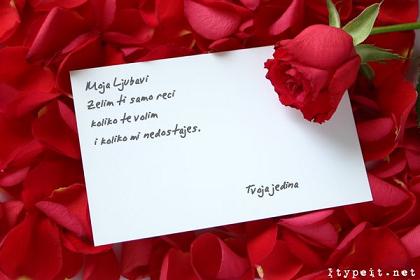 Moja Ljubavi
Zelim ti samo reci
koliko te volim
i koliko mi nedostajes.
Tvoja jedina
Itypeit.net